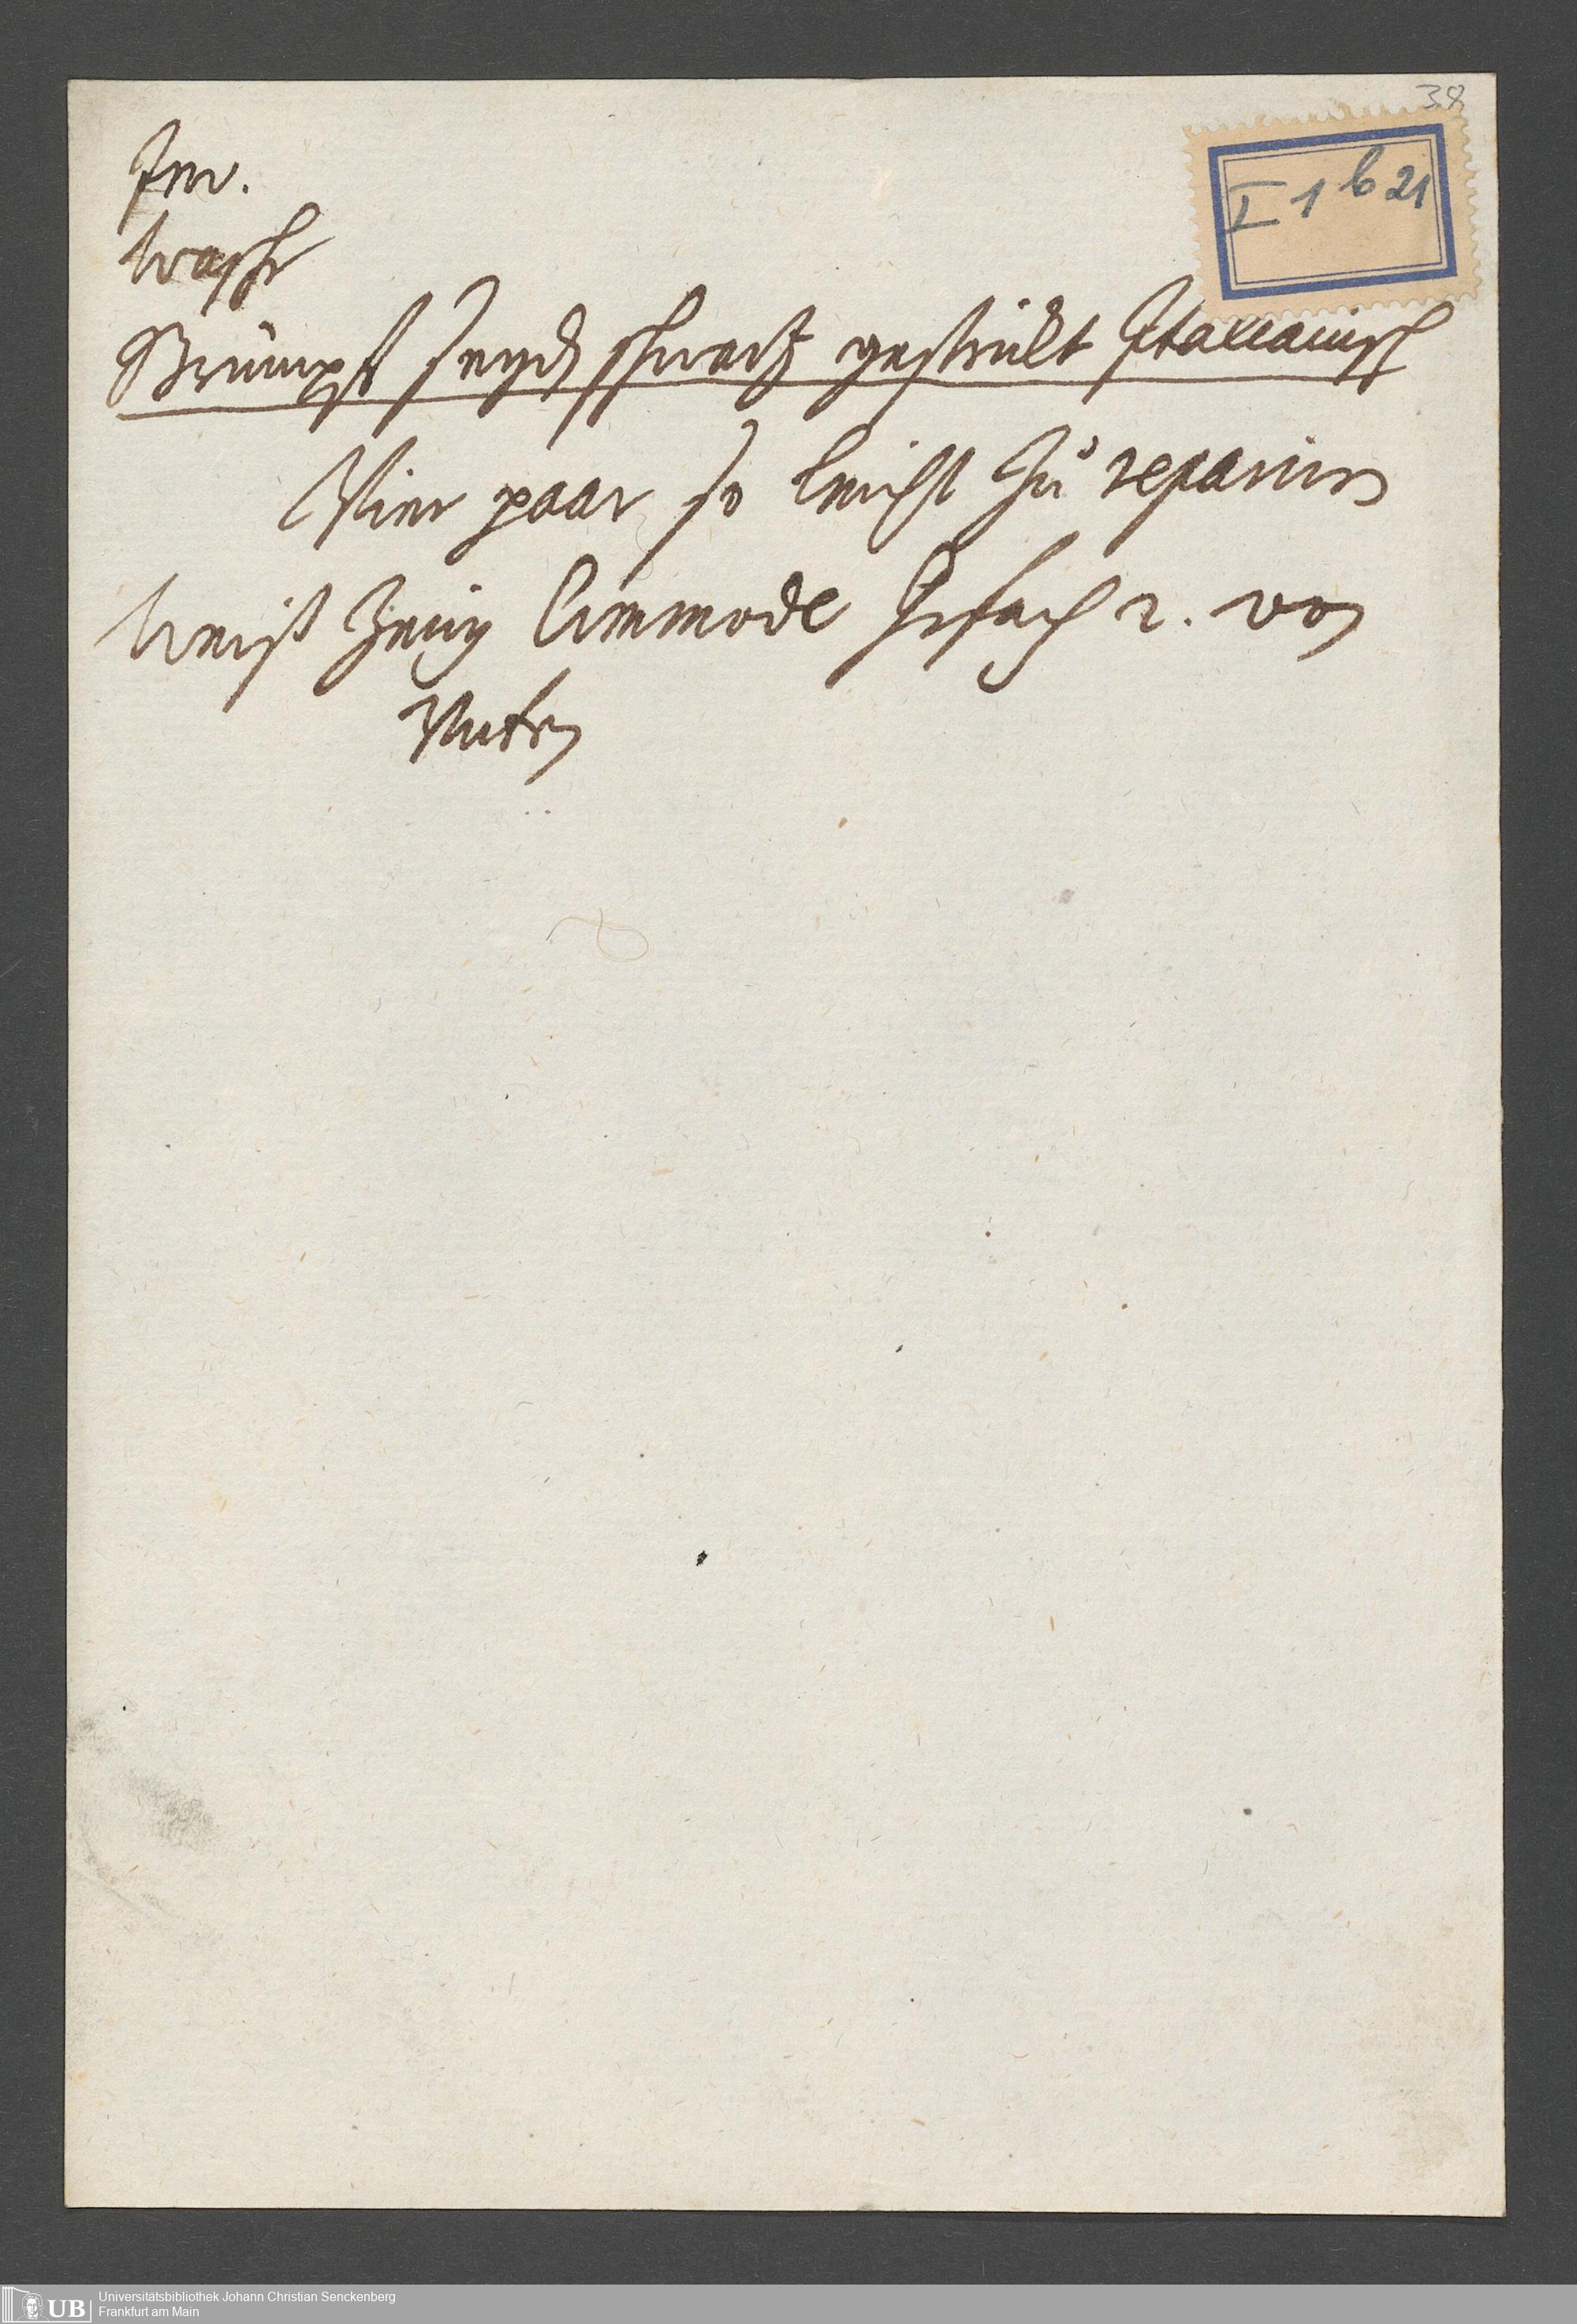 38
I 1 b 21
Inv.
Wasch
Strümpf seyden schwartz gestrickt Italianisch
Vier paar so leicht zu reparirn
Weiß Zeug Commode Gefach 2. von
Unten
UB
Universitätsbibliothek Johann Christian Senckenberg
Frankfurt am Main